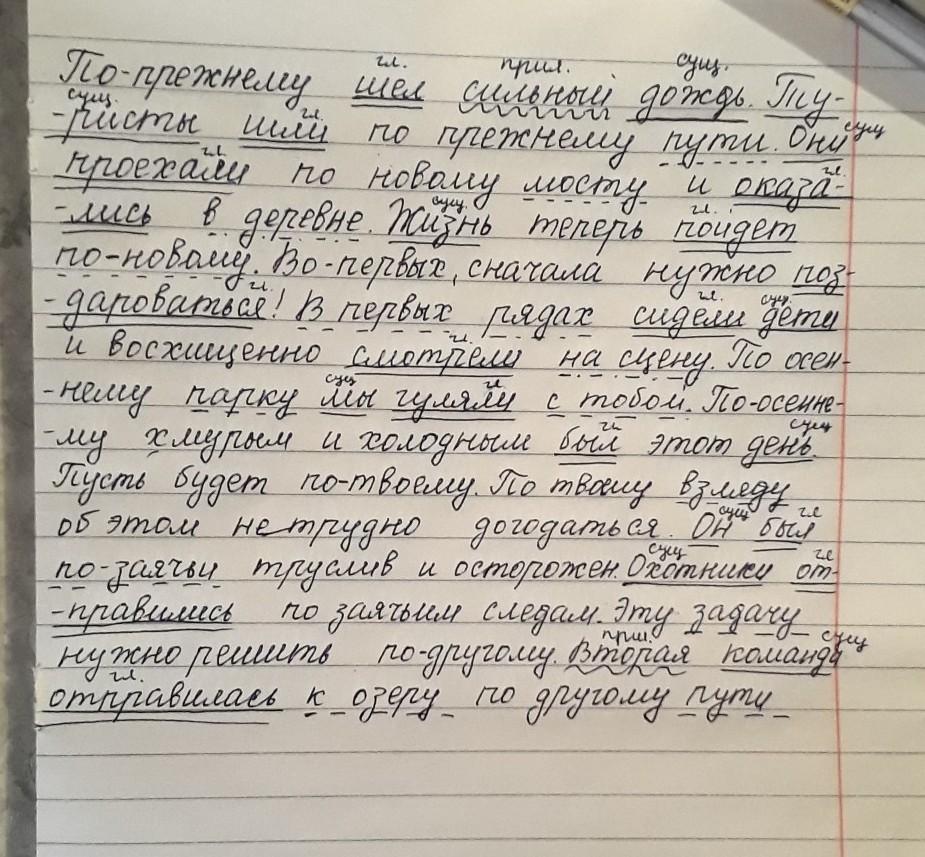 гл. прил. сущ.
По-прежнему шел сильный дождь. Ту-
сущ. гл.
-ристы шли по прежнему пути. Они сущ
гл. гл.
проехали по новому мосту и оказа-
сущ. гл.
-лись в деревне. Жизнь теперь пойдет
по-новому. Во-первых, сначала нужно поз-
гл. гл. сущ.
-дароваться! В первых рядах сидели дети
гл.
и восхищенно смотрели на сцену. По осен-
сущ гл
-нему парку мы гуляли с тобой. По-осенне-
гл сущ
-му хмурым и холодным был этот день.
Пусть будет по-твоему. По твоему взгляду
сущ гл
об этом нетрудно догодаться. Он был
сущ гл
по-заячьи труслив и осторожен. Охотники от-
-правились по заячьим следам. Эту задачу
прил. сущ
нужно решить по-другому. Вторая команда
гл.
отправилась к озеру по другому пути